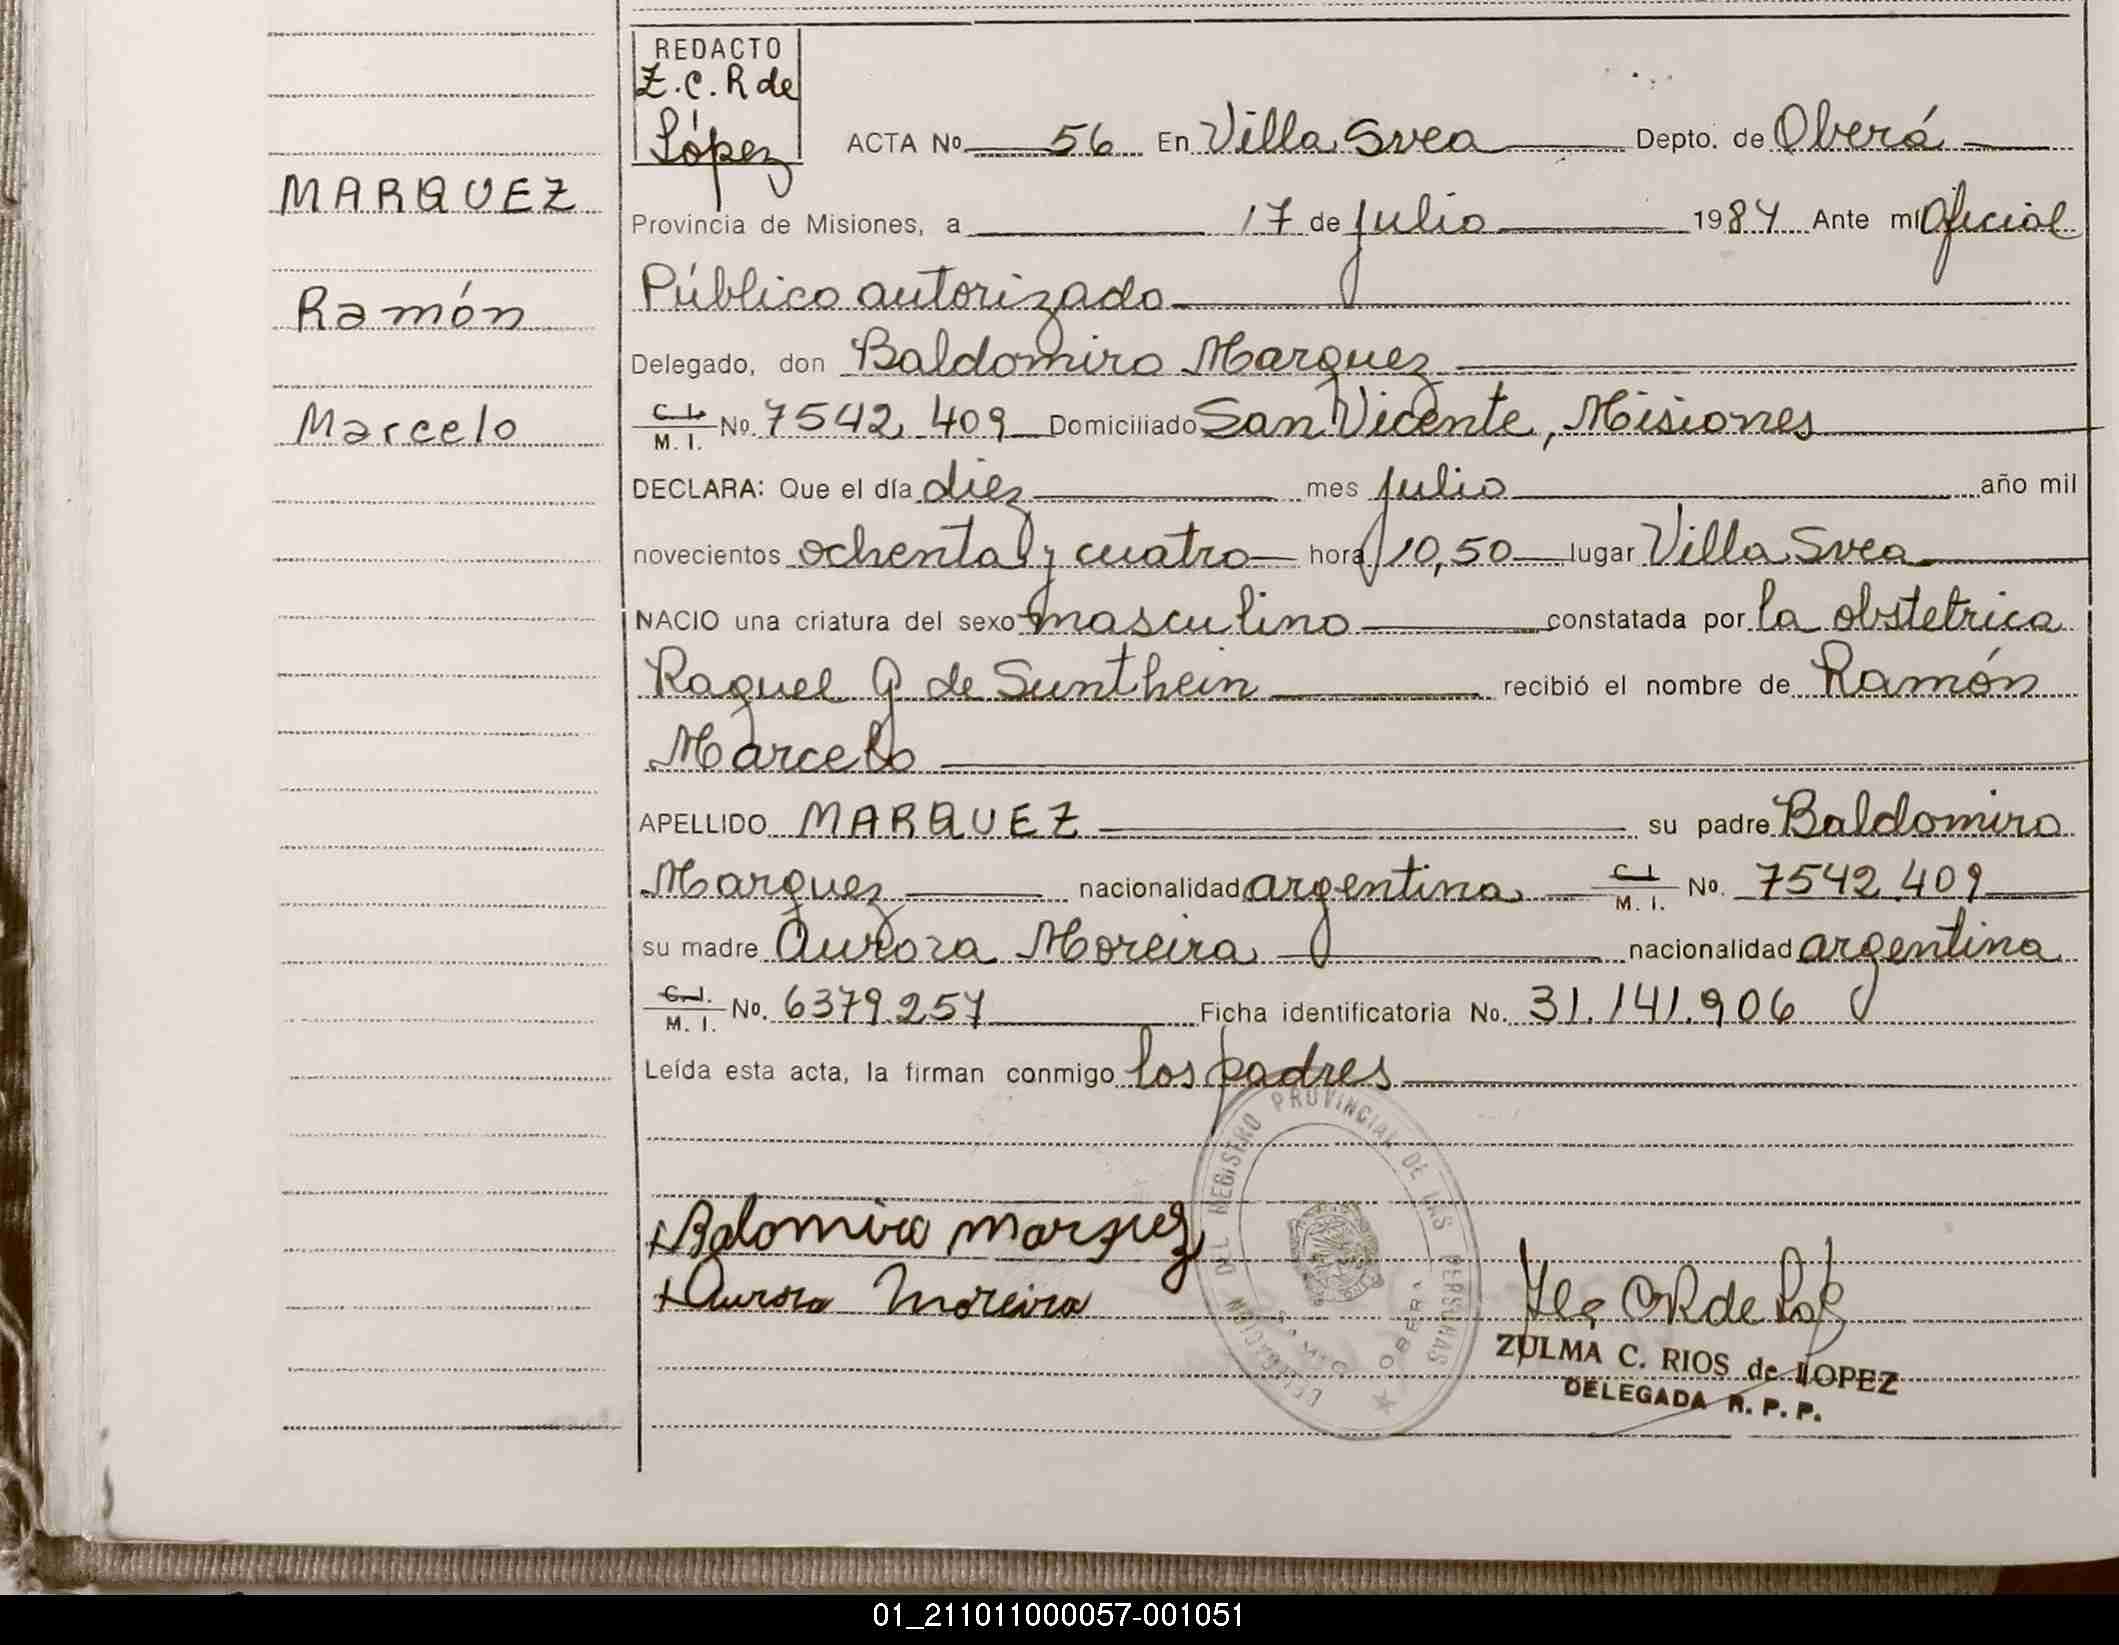 REDACTO
Z.C.R de
López
ACTA No 56 En Villa Svea Depto. de Oberá
MARQUEZ
Provincia de Misiones, a 17 de julio 1984 Ante mí Oficial
Público autorizado
Ramón
Delegado, don Baldomiro Marquez
Marcelo
C.I. M.I. No. 7542.409 Domiciliado San Vicente, Misiones
DECLARA: Que el día diez mes julio año mil
novecientos ochenta y cuatro hora 10,50 lugar Villa Svea
NACIO una criatura del sexo masculino constatada por la obstetrica
Raquel G de Sunthein recibió el nombre de Ramón
Marcelo
APELLIDO MARQUEZ su padre Baldomiro
Marquez nacionalidad argentina C.I. M.I. No. 7542.409
su madre Aurora Moreira nacionalidad argentina
C.I. M.I. No. 6379.257 Ficha identificatoria No. 31.141.906
Leída esta acta, la firman conmigo los padres
DELEGACION DEL REGISTRO PROVINCIAL DE LAS PERSONAS
OBERA
Balomiro marquez
Aurora Moreira
ZULMA C. RIOS de LOPEZ
DELEGADA R. P. P.
01_211011000057-001051